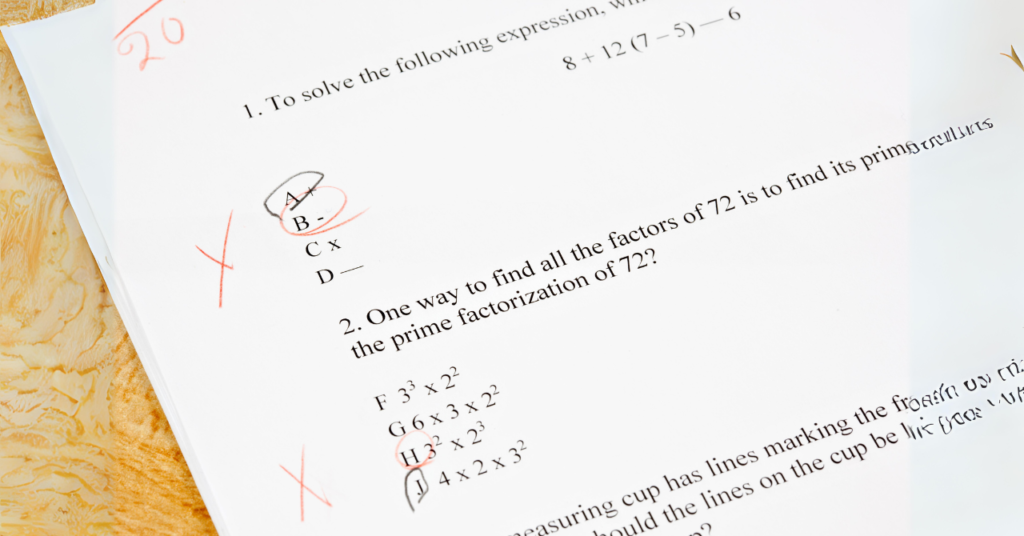 20
1. To solve the following expression,
8 + 12 (7 – 5) — 6
A +
B -
C x
D —
2. One way to find all the factors of 72 is to find its
the prime factorization of 72?
F 3³ x 2²
G 6 x 3 x 2²
H 3² x 2³
J 4 x 2 x 3²
measuring cup has lines marking the
should the lines on the cup be